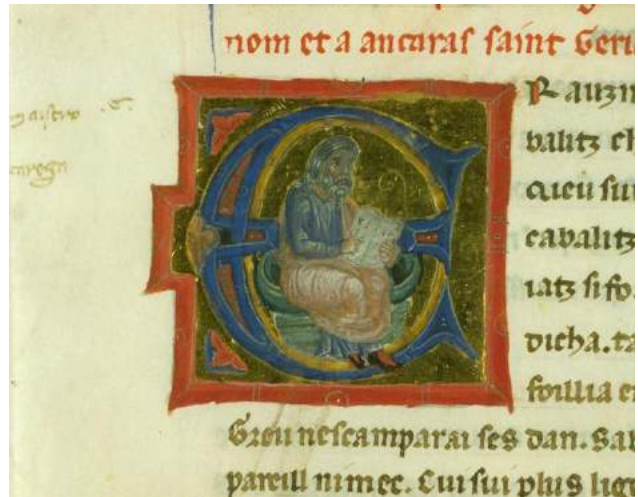 nom et a ancaras saint Geri
maistro .E.
E R auzm
balitz el
queu sui
cabalitz
iatz si fo.
dicha. ta
foillia e
Greu nescamparai ses dan. Sal
pareill nimec. Cui sui plus lige